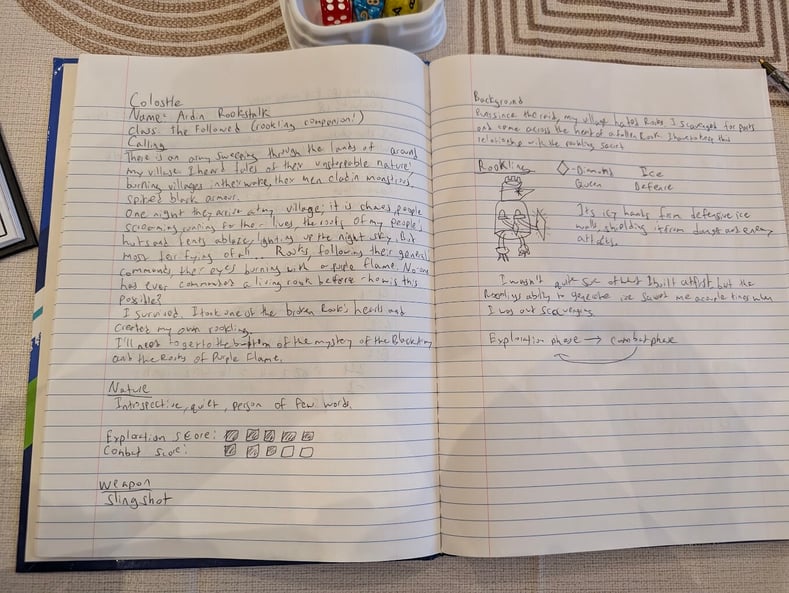 Colostle
Name: Ardin Rookstalk
Class: The Followed (rookling companion!)
Calling
There is an army sweeping through the lands of around
my village. I heard tales of their unstoppable nature,
burning villages in their wake, their men clad in monstrous,
spiked black armour.
One night they arrive at my village; it is chaos, people
screaming running for their lives, the roofs of my people's
huts and tents ablaze, lighting up the night sky. But
most terrifying of all... Rooks, following their generals
commands, their eyes burning with a purple flame. No-one
has ever commanded a living rook before - how is this
possible?
I survived. I took one of the broken Rook's hearts and
created my own rookling.
I'll need to get to the bottom of the mystery of the Black Army
and the Rooks of Purple Flame.
Nature
Introspective, quiet, person of few words.
Exploration score:
Combat score:
Weapon
Slingshot
Background
Ever since the raid, my village hated Rooks. I scavenged for parts
and came across the heart of a fallen Rook. I have kept this
relationship with the rookling secret
Rookling
- Diamonds Ice
Queen Defence
Its icy hands form defensive ice
walls, shielding it from danger and enemy
attacks.
I wasn't quite sure of what I built at first, but the
Rooklings ability to generate ice saved me a couple times when
I was out scavenging.
Exploration phase → combat phase